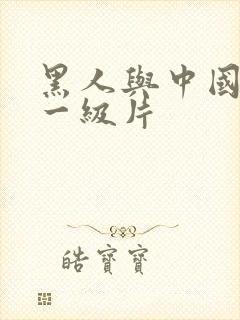 黑人與中國
一級片
皓寶寶